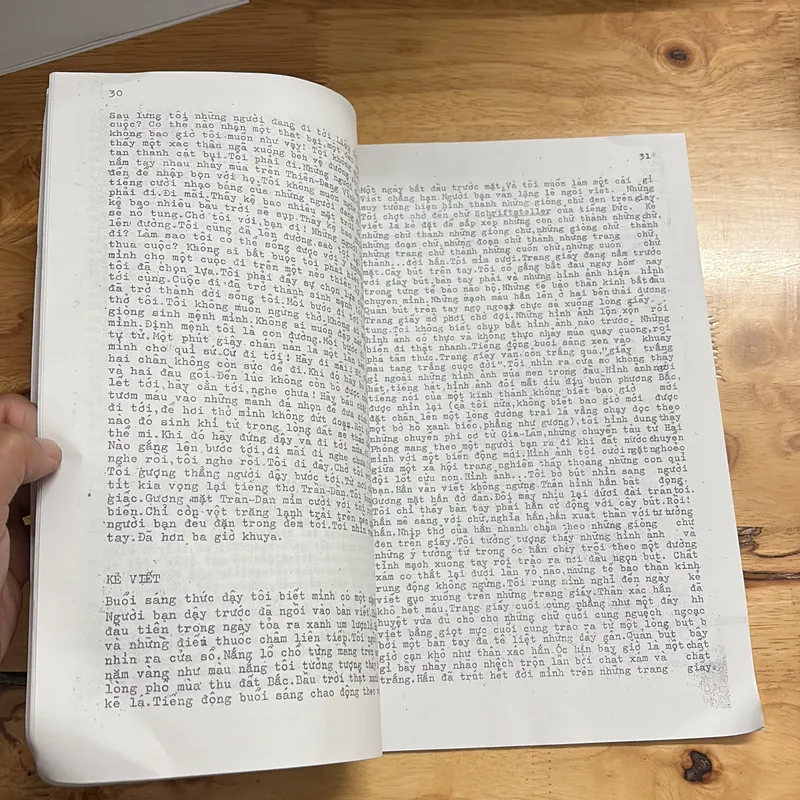 30
Sau lưng tôi những người đang đi tới
cuộc? Có thể nào nhận một thất bại, một
không bao giờ tôi muốn như vậy! Tôi không
thấy một xác thân ngã xuống bên vệ đường
tan thành cát bụi. Tôi phải đi. Những
nắm tay nhau nhảy múa trên Thiên-Đàng
đến để nhập bọn với họ. Tôi không muốn
tiếng cười nhạo báng của những người đang
phải đi. Đi mãi. Thây kệ bao nhiêu mặt đất
kệ bao nhiêu bầu trời sẽ sụp. Thây kệ bao
sẽ nổ tung. Chờ tôi với, bạn ơi! Những người
lên đường. Tôi cũng đã lên đường, sao
đi? Làm sao tôi có thể sống được với
thua cuộc? Không ai bắt buộc tôi phải
mình cho một cuộc đi trên một nẻo thiên
tôi đã chọn lựa. Tôi phải đầy sự chọn
tới cùng. Cuộc đi đã trở thành sinh mệnh
đã trở thành đời sống tôi. Mỗi bước đi
thở tôi. Tôi không muốn ngưng thở. Không ai
giòng sinh mệnh mình. Không ai muốn
mình. Định mệnh tôi là con đường. Một
tự tử. Một phút giây chán nản là một lần
mình cho quỉ sứ. Cứ đi tới! Hãy đi mãi
hai chân không còn sức để đi. Khi đó hãy bò
và hai đầu gối. Đến lúc không còn bò được
lết tới, hãy cắn tới, nghe chưa! Hãy bấu chặt
tươm máu vào những mảnh đá nhọn để đưa
đi tới, để hơi thở mình không đứt đoạn. Rồi
nào đó sinh khí từ trong lòng đất sẽ thấm
thể mi. Khi đó hãy đứng dậy và đi tới mãi
Nào gắng lên bước tới, đi mãi đi nghe chưa
nghe rồi, tôi nghe rồi. Tôi đi đây. Chờ tôi
Tôi gượng thẳng người dậy bước tới. Từ
tít kia vọng lại tiếng thơ Trần-Dần. Tôi
giác. Gương mặt Trần-Dần mỉm cười với tôi
biến. Chỉ còn vệt trăng lạnh trải trên
người bạn đều đặn trong đêm tối. Tôi nhìn
tay. Đã hơn ba giờ khuya.
KẺ VIẾT
Buổi sáng thức dậy tôi biết mình có một
Người bạn dậy trước đã ngồi vào bàn viết
đầu tiên trong ngày tỏa ra xanh um lượn
và những điếu thuốc châm liên tiếp. Tôi
nhìn ra cửa sổ. Nắng lỗ chỗ từng mảng trên
năm vàng như màu nắng tôi tưởng tượng thấy
lòng phố mùa thu đất Bắc. Bầu trời thật xanh
kẽ lá. Tiếng động buổi sáng chao động theo
31
Một ngày bắt đầu trước mặt. Và tôi muốn làm một cái gì
Viết chẳng hạn. Người bạn vẫn lặng lẽ ngồi viết. Những
suy tưởng hiện hình thành những giòng chữ đen trên giấy.
Tôi chợt nhớ đến chữ Schriftsteller của tiếng Đức. Kẻ
viết là kẻ đặt để sắp xếp những con chữ thành những chữ,
những chữ thành những giòng chữ, những giòng chữ thành
những đoạn chữ, những đoạn chữ thành những trang chữ,
những trang chữ thành những cuốn chữ, những cuốn chữ
thành...đời hắn. Tôi mỉm cười. Trang giấy đang nằm trước
mặt. Cây bút trên tay. Tôi cố gắng bắt đầu ngày hôm nay
với giấy bút, bàn tay phải và những hình ảnh hiện hình
trong từng tế bào não bộ. Những tế bào thần kinh bắt đầu
chuyển mình. Những mạch máu hằn lên ở hai bên thái dương.
Quản bút trên tay ngọ ngoạy chực sà xuống lòng giấy.
Trang giấy mở phơi chờ đợi. Những hình ảnh lộn xộn rối
tung. Tôi không biết chụp bắt hình ảnh nào trước. Những
hình ảnh có thực và không thực nhảy múa quay cuồng, rồi
biến đi thật nhanh. Tiếng động buổi sáng xen vào khuấy
phá tâm thức. Trang giấy vẫn còn trắng quá, "giấy trắng
tang trắng cuộc đời". Tôi nhìn ra cửa sổ không thấy
gì ngoài những hình ảnh múa men trong đầu. Hình ảnh nơi
hát, tiếng hát, hình ảnh đôi mắt dìu dịu buồn phương Bắc,
tiếng nói của một kinh thành không biết bao giờ mới
được nhìn lại (cả tôi nữa, không biết bao giờ mới được
đặt chân lên nơi lòng đường trải lá vàng chạy dọc theo
một bờ hồ xanh biếc, phẳng như gương), tôi hình dung thấy
những chuyến phi cơ từ Gia-Lâm, những chuyến tàu từ Hải
Phòng mang theo một người bạn ra đi khi đất nước chuyển
mình với một biến động mới. Hình ảnh tôi cười ngặt nghoẽo
giữa một xã hội trang nghiêm thấp thoáng những con quỉ
đội lốt cừu non. Hình ảnh... Tôi bỏ bút nhìn sang người
bạn. Hắn vẫn viết không ngừng. Thân hình hắn bất động.
Gương mặt hắn đờ đẫn. Đôi mày nhíu lại dưới dải trán tối.
Tôi chỉ thấy bàn tay phải hắn cử động với cây bút. Rồi!
hắn mê sảng với chữ, nghĩa hắn, hắn xuất thần với tư tưởng
hắn. Nhịp thở của hắn nhanh chậm theo những giòng chữ
đen trên giấy. Tôi tưởng tượng thấy những hình ảnh và
những ý tưởng từ trong óc hắn chảy trôi theo một đường
tĩnh mạch xuống tay rồi trào ra nơi đầu ngọn bút. Chất
xám co thắt lại dưới làn vỏ não, những tế bào thần kinh
rung động không ngừng. Tôi rùng mình nghĩ đến ngày kẻ
viết gục xuống trên những trang giấy. Thân xác hắn đã
khô hết máu. Trang giấy cuối cùng phẳng như một đáy
huyệt vừa đủ cho cho những chữ cuối cùng nguệch ngoạc
viết bằng giọt mực cuối cùng trào ra từ một lòng bút
bởi một bàn tay đã tê liệt những dây gân. Quản bút bây
giờ cạn khô như thân xác hắn. Óc hắn bây giờ là một chất
gì bầy nhầy nhão nhệch trộn lẫn bởi chất xám và chất
trắng. Hắn đã trút hết đời mình trên những trang giấy.